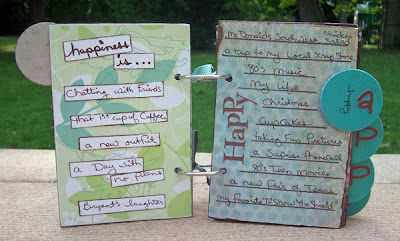 happiness
is...
Chatting with Friends
that 1st cup of Coffee
a new outfit
a Day with
no plans
Bryant's laughter
HAPPY
McDonald's Southwest Chicken
Salad
a trip to my Local Scrap Store
80's Music
My life
Christmas
Cupcakes
taking Fun Pictures
a Surprise Phonecall
80's Teen Movies
a new Pair of Jeans
my favorite TV Show "the Shield"